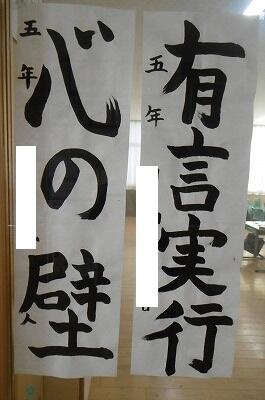 有言実行
五年
心の壁
五年
人